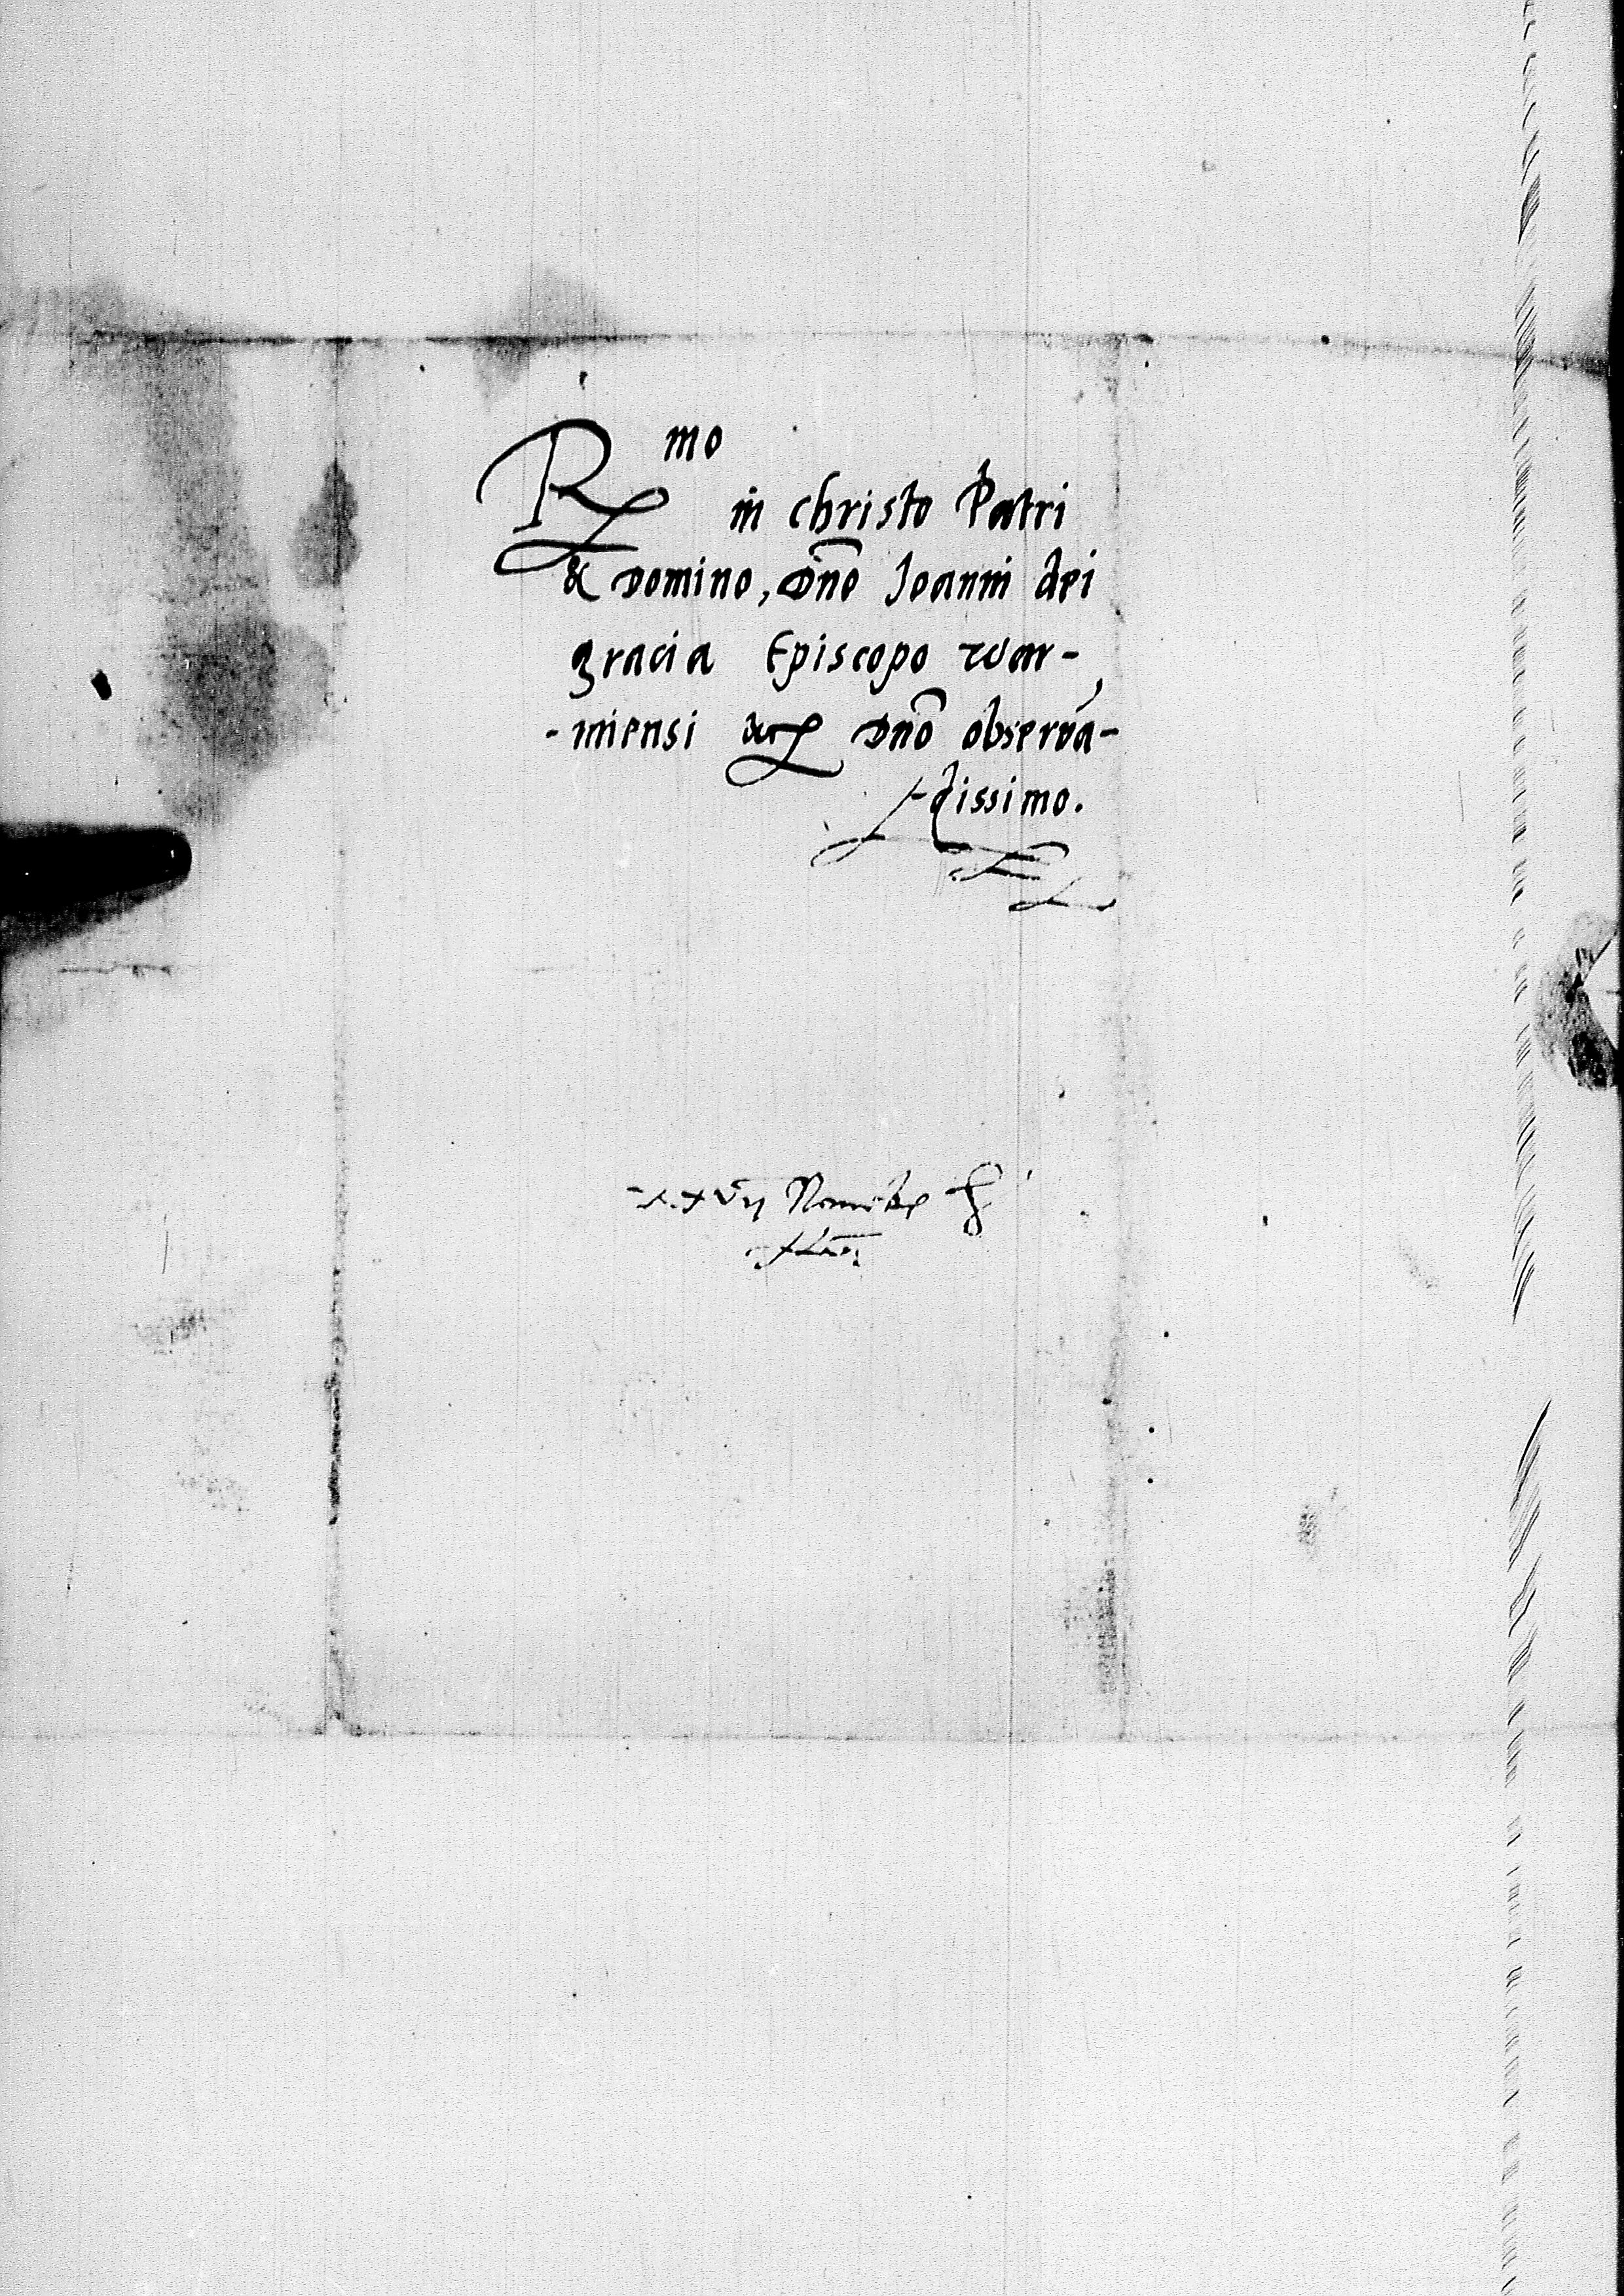 R mo
in christo Patri
& Domino, Dno Joanni dei
gracia Episcopo War-
-miensi &c Dno observa-
dissimo.